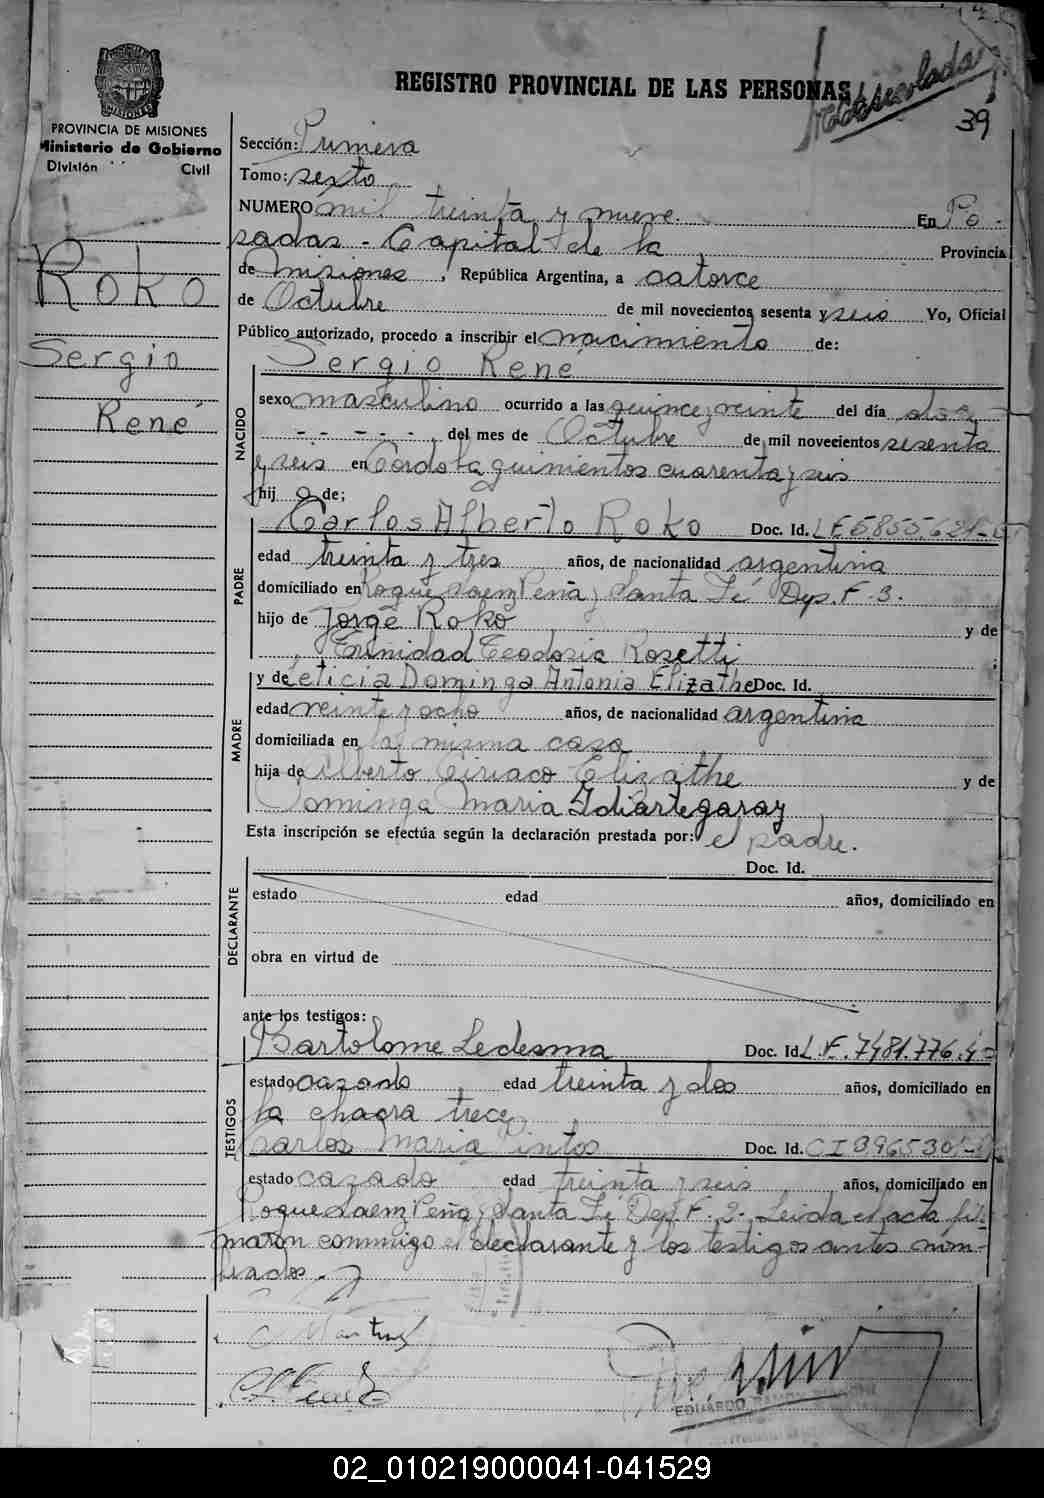 REGISTRO PROVINCIAL DE LAS PERSONAS
39
PROVINCIA DE MISIONES
Ministerio de Gobierno
División Civil
Roko
Sergio
René
Sección: Primera
Tomo: sexto
NUMERO mil treinta y nueve En Po-
sadas - Capital de la Provincia
de Misiones, República Argentina, a catorce
de Octubre de mil novecientos sesenta y seis Yo, Oficial
Público autorizado, procedo a inscribir el nacimiento de:
Sergio René
NACIDO
sexo masculino ocurrido a las quince y veinte del día doce
- - - - - , del mes de Octubre de mil novecientos sesenta
y seis en Córdoba quinientos cuarenta y seis
hij o de;
PADRE
Carlos Alberto Roko Doc. Id. L E 5.855.621
edad treinta y tres años, de nacionalidad argentina
domiciliado en Roque Saenz Peña y Santa Fé Dep. F-3.
hijo de Jorge Roko y de
Trinidad Teodosia Rosetti ;
MADRE
y de Leticia Dominga Antonia Elizathe Doc. Id.
edad veinte y ocho años, de nacionalidad argentina
domiciliada en la misma casa
hija de Alberto Ciriaco Elizathe y de
Dominga Maria Idiartegaray
Esta inscripción se efectúa según la declaración prestada por: el padre.
Doc. Id.
DECLARANTE
estado edad años, domiciliado en
obra en virtud de
ante los testigos:
TESTIGOS
Bartolome Ledesma Doc. Id. L.E. 7481.776
estado casado edad treinta y dos años, domiciliado en
la chacra trece
Carlos Maria Pintos Doc. Id. CI 396530
estado cazado edad treinta y seis años, domiciliado en
Roque Saenz Peña y Santa Fé Dep. F-3. Leida el acta fir-
maron conmigo el declarante y los testigos antes nom-
brados.
EDUARDO RAMON
02_010219000041-041529